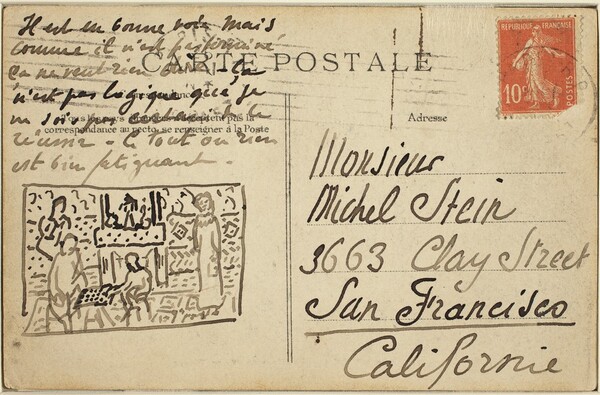 Il est en bonne voie mais
comme il n'est pas terminé
ça ne veut rien dire. Ça
n'est pas logique que je
réussir - Ce tout ou rien
est bien fatiguant -
CARTE POSTALE
pas la
correspondance au recto, se renseigner à la Poste
Adresse
REPUBLIQUE FRANÇAISE
10c
POSTES
Monsieur
Michel Stein
3663 Clay Street
San Francisco
Californie